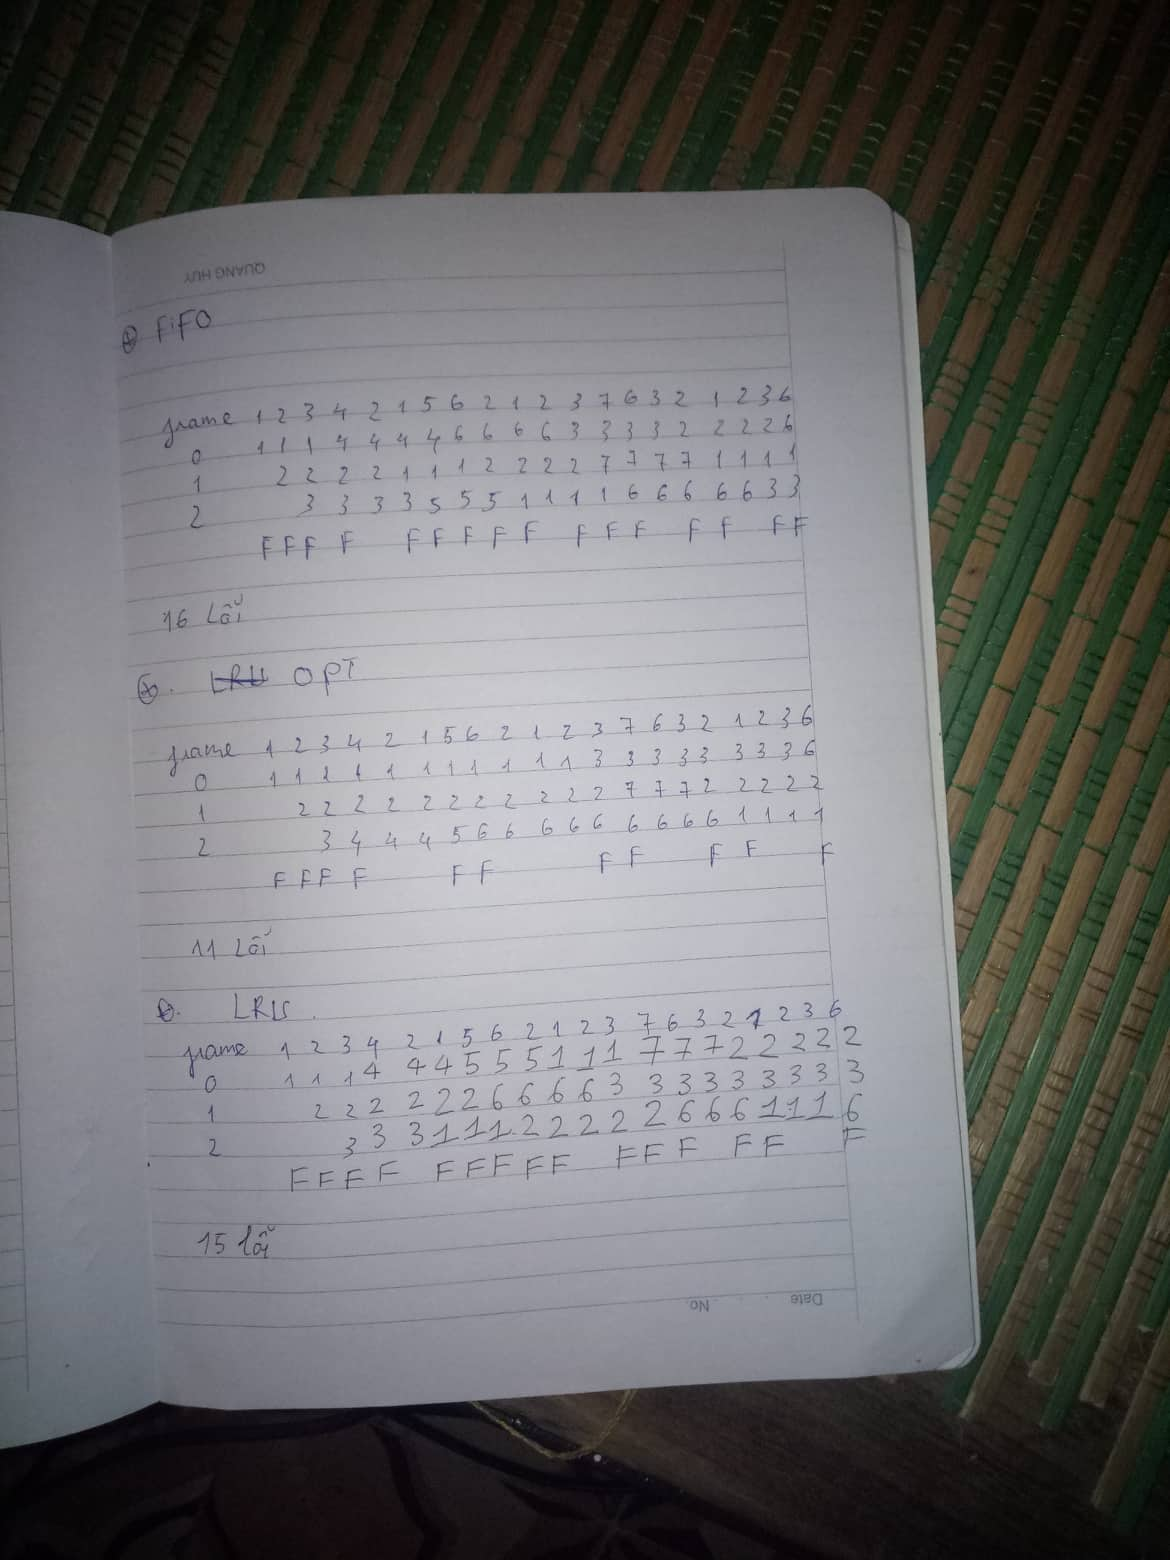 QUANG HUY
⊕ FiFO
frame 1 2 3 4 2 1 5 6 2 1 2 3 7 6 3 2 1 2 3 6
0 1 1 1 4 4 4 4 6 6 6 6 3 3 3 3 2 2 2 2 6
1 2 2 2 2 1 1 1 2 2 2 2 7 7 7 7 1 1 1 1
2 3 3 3 3 5 5 5 1 1 1 1 6 6 6 6 6 3 3
F F F F F F F F F F F F F F F F
16 Lỗi
⊕. LRU OPT
frame 1 2 3 4 2 1 5 6 2 1 2 3 7 6 3 2 1 2 3 6
0 1 1 1 1 1 1 1 1 1 1 1 3 3 3 3 3 3 3 3 6
1 2 2 2 2 2 2 2 2 2 2 2 7 7 7 2 2 2 2 2
2 3 4 4 4 5 6 6 6 6 6 6 6 6 6 1 1 1 1
F F F F F F F F F F F
11 Lỗi
⊕. LRU
frame 1 2 3 4 2 1 5 6 2 1 2 3 7 6 3 2 1 2 3 6
0 1 1 1 4 4 4 5 5 5 1 1 1 7 7 7 2 2 2 2 2
1 2 2 2 2 2 2 6 6 6 6 3 3 3 3 3 3 3 3 3
2 3 3 3 1 1 1 2 2 2 2 2 6 6 6 1 1 1 6
F F F F F F F F F F F F F F F
15 lỗi
Date . . . No.